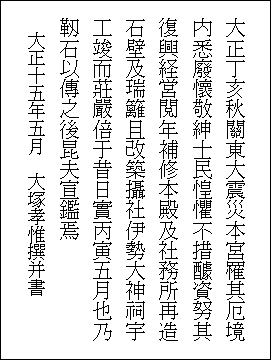 大正丁亥秋關東大震災本宮罹其厄境
内悉廢懷敬紳士民惶懼不措醵資努其
復興経営閲年補修本殿及社務所再造
石壁及瑞籬且改築攝社伊勢大神祠宇
工竣而莊嚴倍于昔日實丙寅五月也乃
靭石以傳之後昆夫宣鑑焉
大正十五年五月　大塚孝惟撰并書